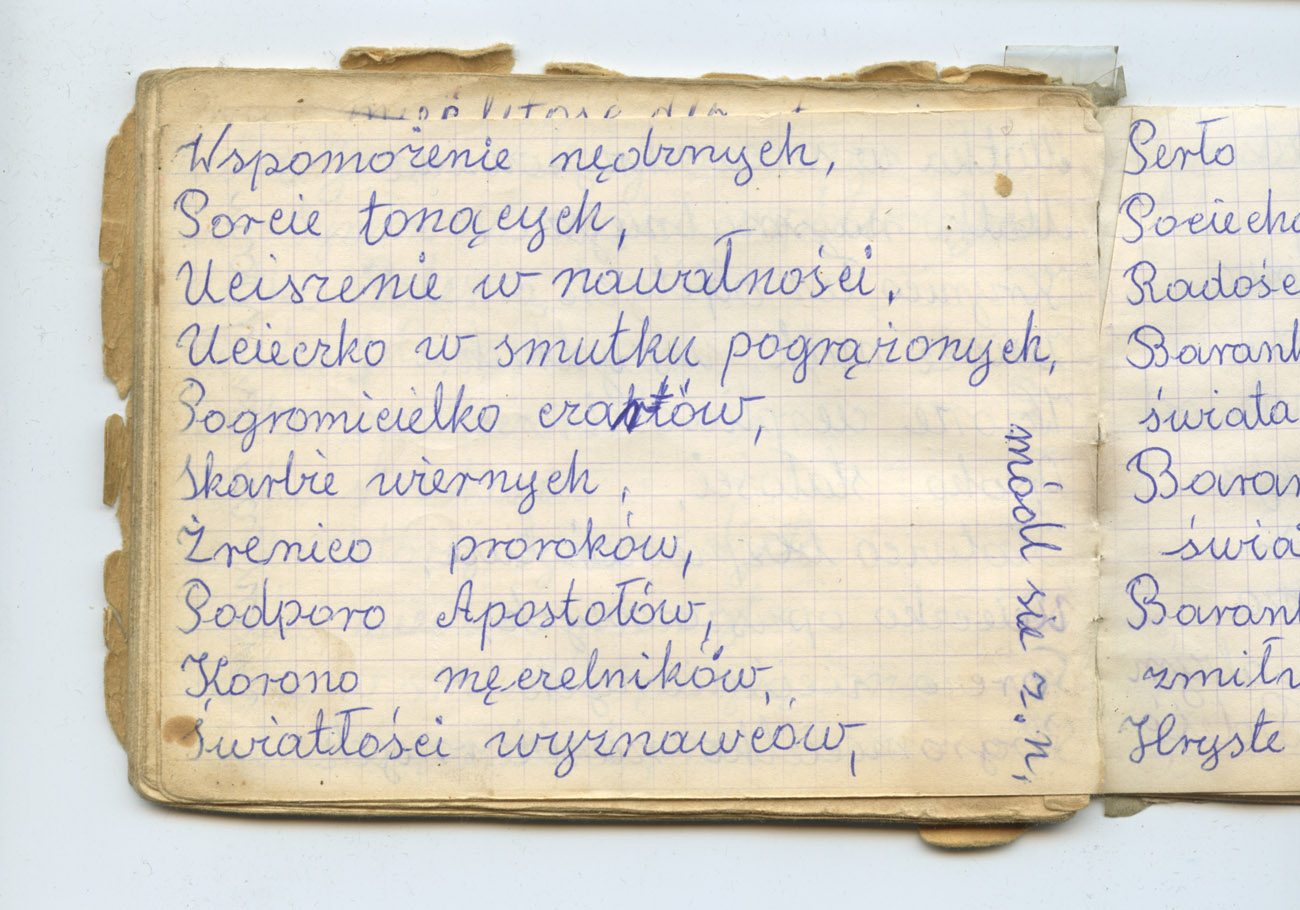 mieć litość dla
Wspomożenie nędznych,
Porcie tonących,
Uciszenie w nawałności,
Ucieczko w smutku pogrążonych,
Pogromicielko czartów,
Skarbie wiernych,
Źrenico proroków,
Podporo Apostołów,
Korono męczelników,
Światłości wyznawców,
módl się z. n,
Perło
Pociecho
Radośc
Barank
świata
Baran
świa
Barank
zmiłu
Hryste